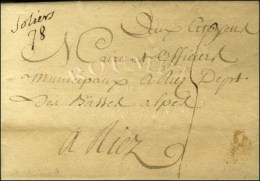 Soliers
78
Aux Citoyens
Maire et Officiers
municipaux a Riez Dept
des Basses alpes
a Riez